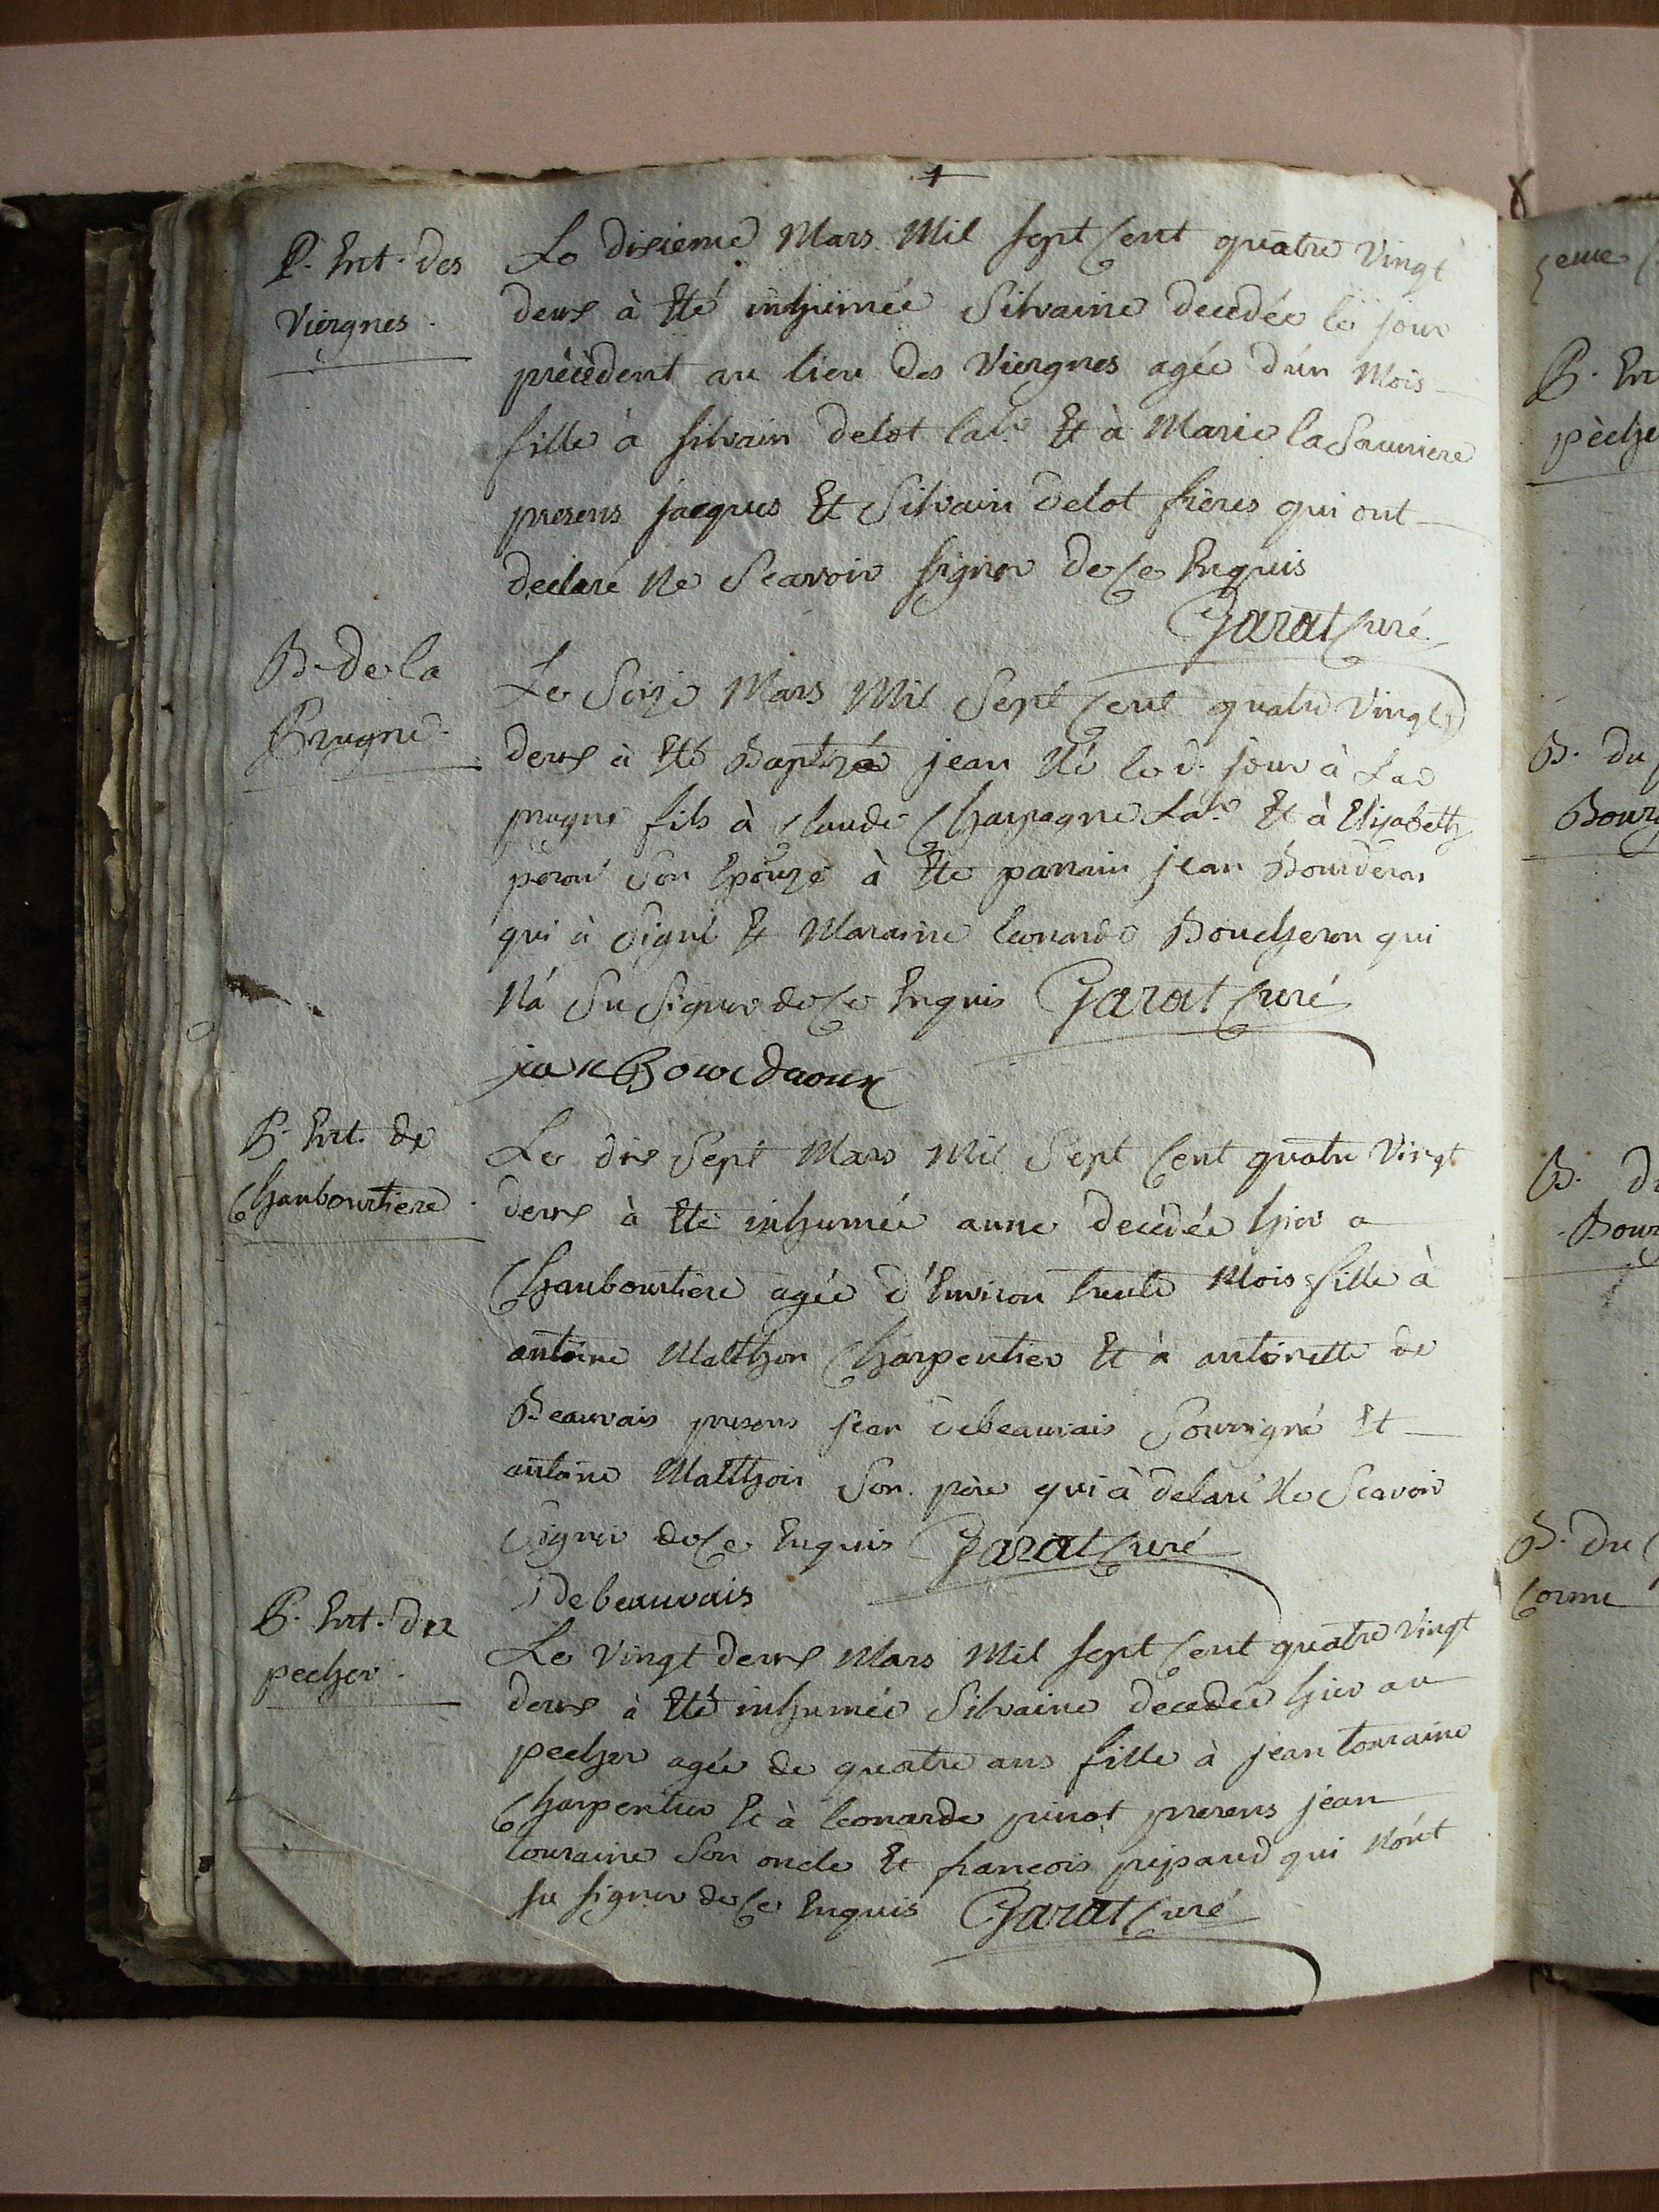 P. Ent. des
Viergnes.
Le dixieme Mars Mil sept Cent quatre Vingt
deux à Eté inhumée Silvaine decedée le jour
précèdent au lieu des Viergnes agée d'un Mois
fille à silvain delot labr Et à Marie la Sauniere
presens jacques Et Silvain delot frères qui ont
declaré Ne Scavoir signer de Ce Enquis
Garat Curé
B. de la
Prugne.
Le Seize Mars Mil Sept Cent quatre Vingt
deux à Eté Baptizé jean Né le d. jour à La
prugne fils à Claude Chapagne Labr Et à Elizabeth
son Epouze à Eté parrain jean
qui à Signé Et Maraine leonarde Boucheron qui
N'a Su Signer de Ce Enquis Garat Curé
jean Bourdaoux
P. Ent. de
Chanbourtiere.
Le dix Sept Mars Mil Sept Cent quatre Vingt
deux à Eté inhumée anne decédée hier a
Chanbourtiere agée d'Environ trente Mois fille à
antoine Matthon Charpentier Et à antoinette de
Beauvais presens jean debeauvais Soussigné Et
antoine Matthon Son père qui à delaré Ne Scavoir
Signer de Ce Enquis Garat Curé
j debeauvais
P. Ent. du
pecher.
Le Vingt deux Mars Mil sept Cent quatre Vingt
deux à Eté inhumée Silvaine decedée hier au
pecher agée de quatre ans fille à jean touraine
Charpentier Et à leonarde pinot presens jean
touraine Son oncle Et françois qui N'ont
su signer de Ce Enquis Garat Curé
8
B. du
Bourg
B. du
Bour
B. du